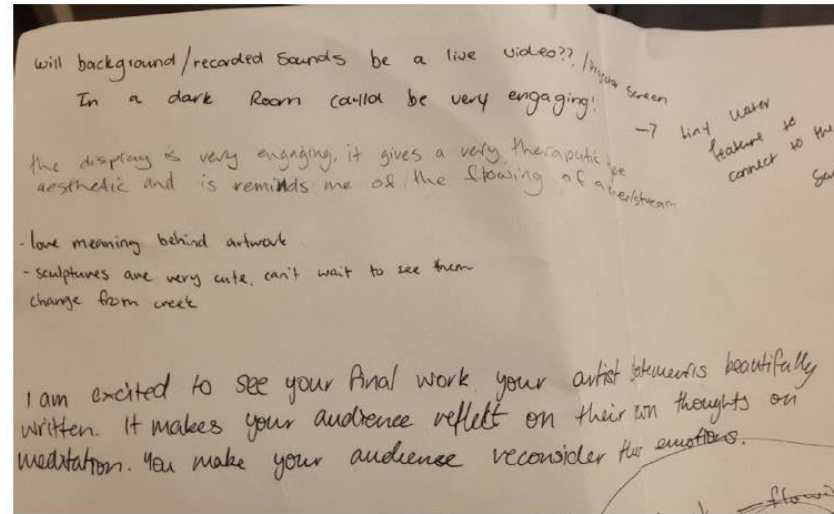 will background/recorded sounds be a live video?? / Projector Screen
In a dark Room could be very engaging!
→ tiny water
feature to
connect to the
the display is very engaging, it gives a very theraputic type
aesthetic and is reminds me of the flowing of a river/stream
- love meaning behind artwork
- sculptures are very cute, can't wait to see them
change from creek
I am excited to see your final work. your artist statement is beautifully
written. It makes your audience reflect on their own thoughts on
meditation. You make your audience reconsider their emotions.